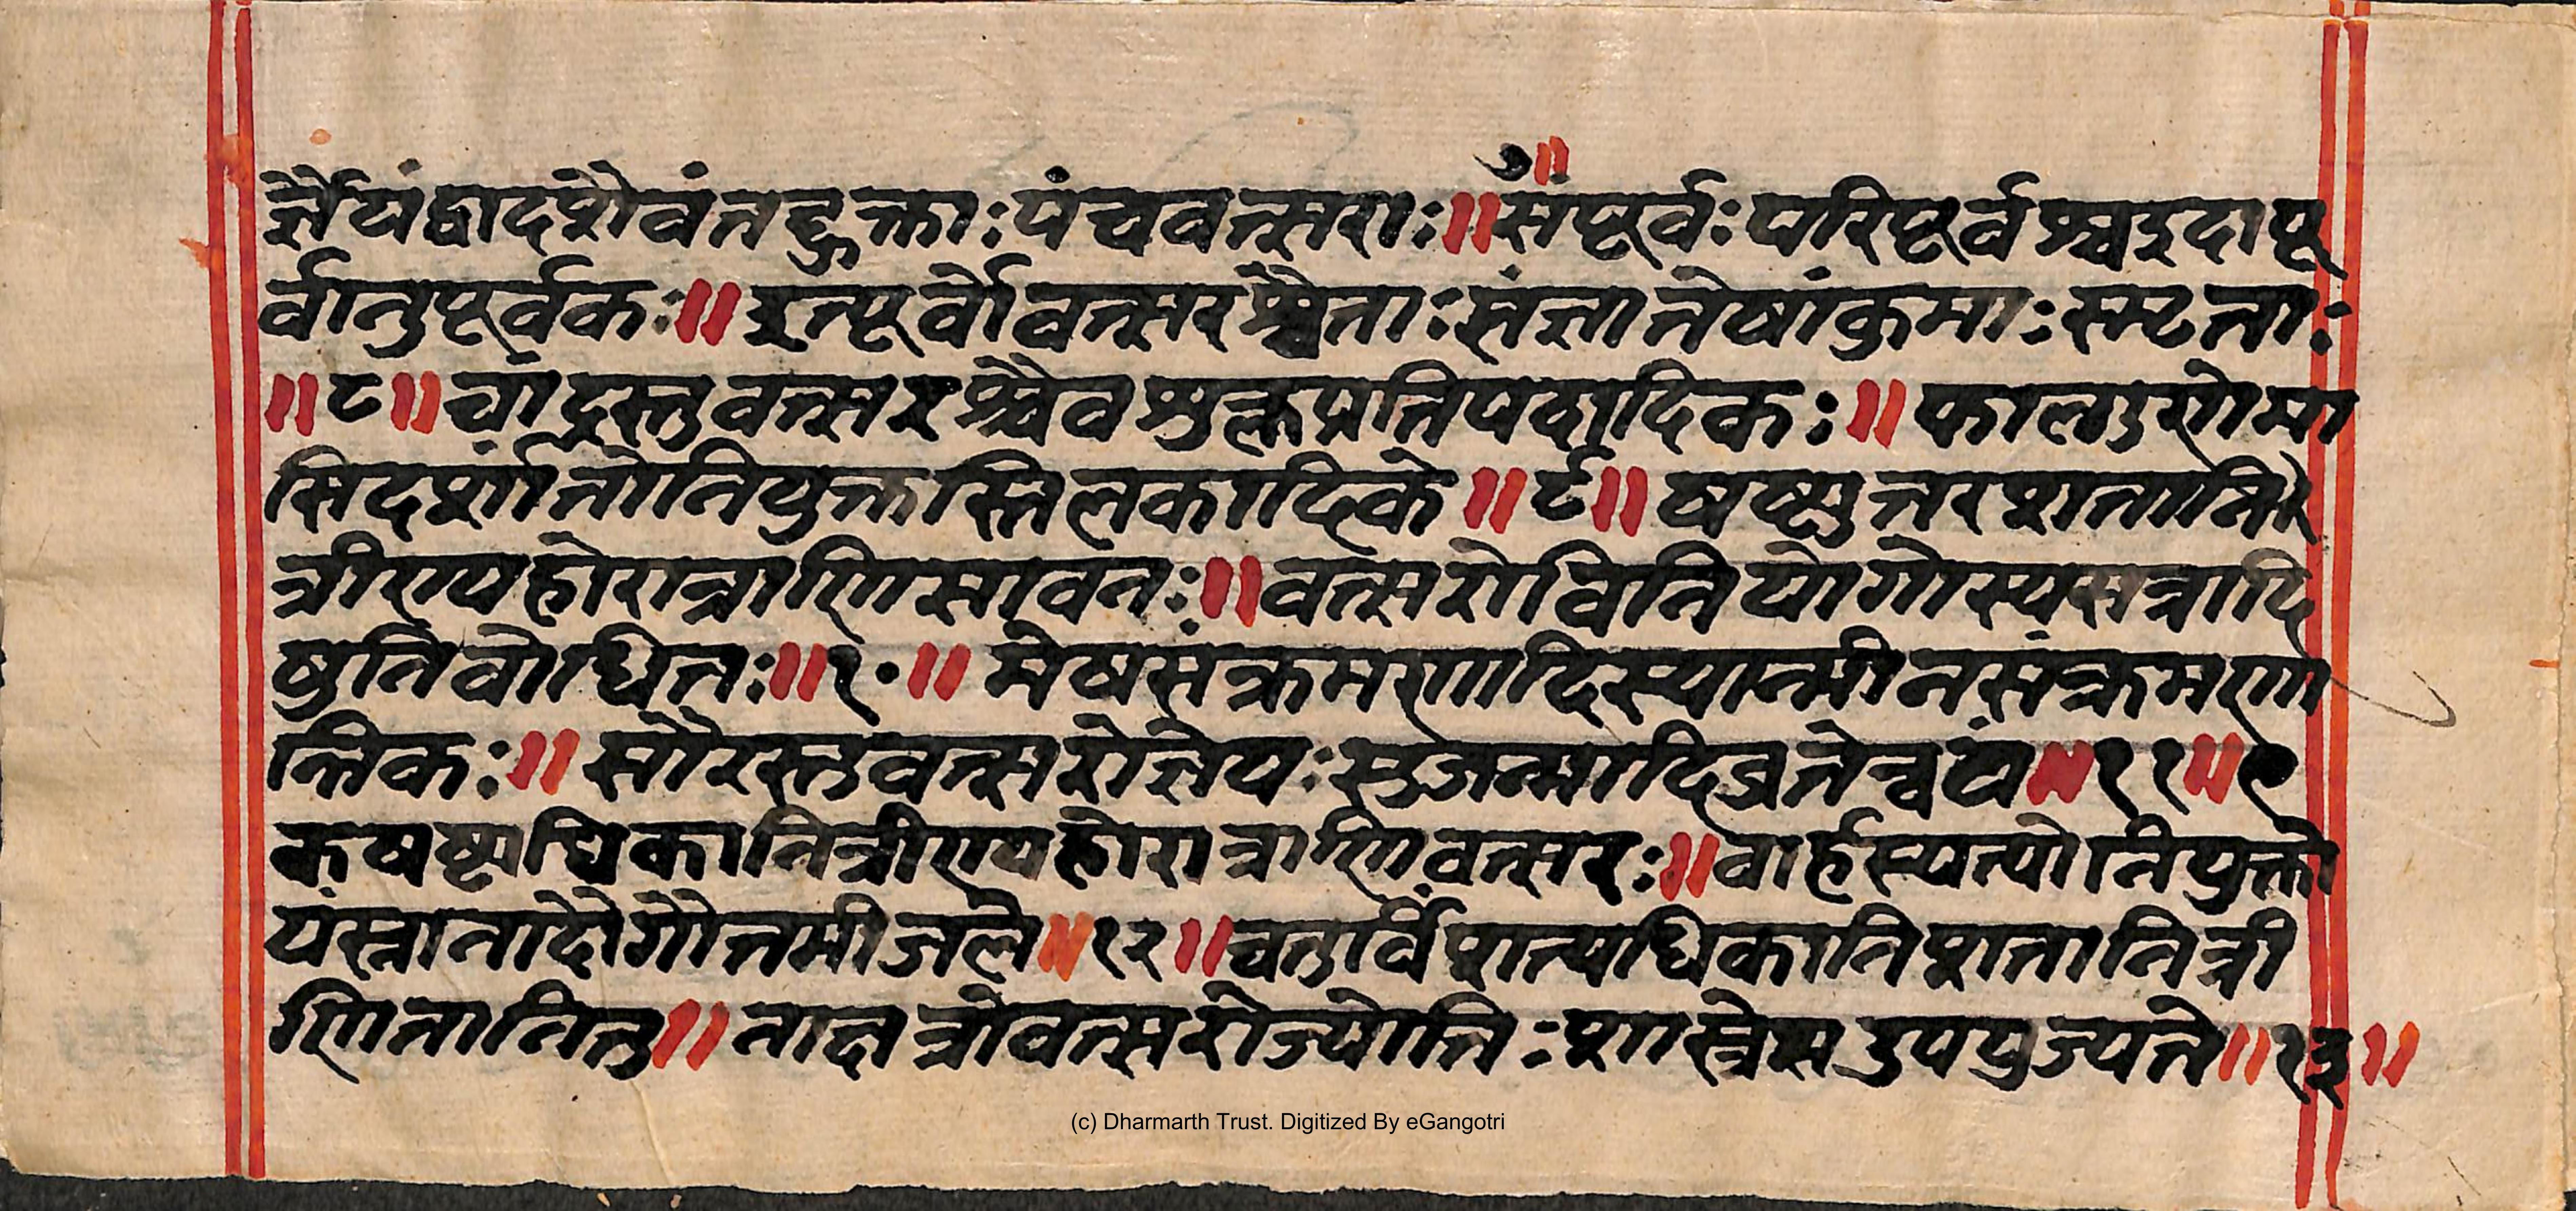 ७॥
र्ज्ञेयं द्वादशैवं तद्भुक्ताः पंचवत्सराः॥संपूर्वः परिपूर्वश्च इदापू
र्वानुपूर्वकः॥इत्पूर्वो वत्सरश्चैताः संज्ञा तेषां क्रुमाः स्मृताः
॥८॥ चांद्रस्तु वत्सरश्चैव शुक्लप्रतिपदादिकः॥ फाल्गुणो मा
सि दर्शांतो नियुक्तस्तिलकादिके॥९॥ षष्ट्युत्तरशतानि
त्रीण्यहोरात्राणि सावनः॥वत्सरो विनियोगोस्य सत्रादि
षु निबोधितः॥१०॥ मेषसंक्रमणादि स्यान्मीनसंक्रमणा
न्तिकः॥ सौरस्तु वत्सरो ज्ञेयः स्तु जन्मादिव्रतेत्वयं॥११॥ए
कषष्ट्याधिकानि त्रीण्यहोरात्राणि वत्सरः॥वार्हस्पत्यो नियुक्तो
यं स्नानादौ गौतमीजले॥१२॥चतुर्विंशात्यधिकानि शतानि त्री
णि तानि तु॥ नाक्षत्रो वत्सरो ज्योतिःशास्त्रेस उपयुज्यते॥१३॥
(c) Dharmarth Trust. Digitized By eGangotri